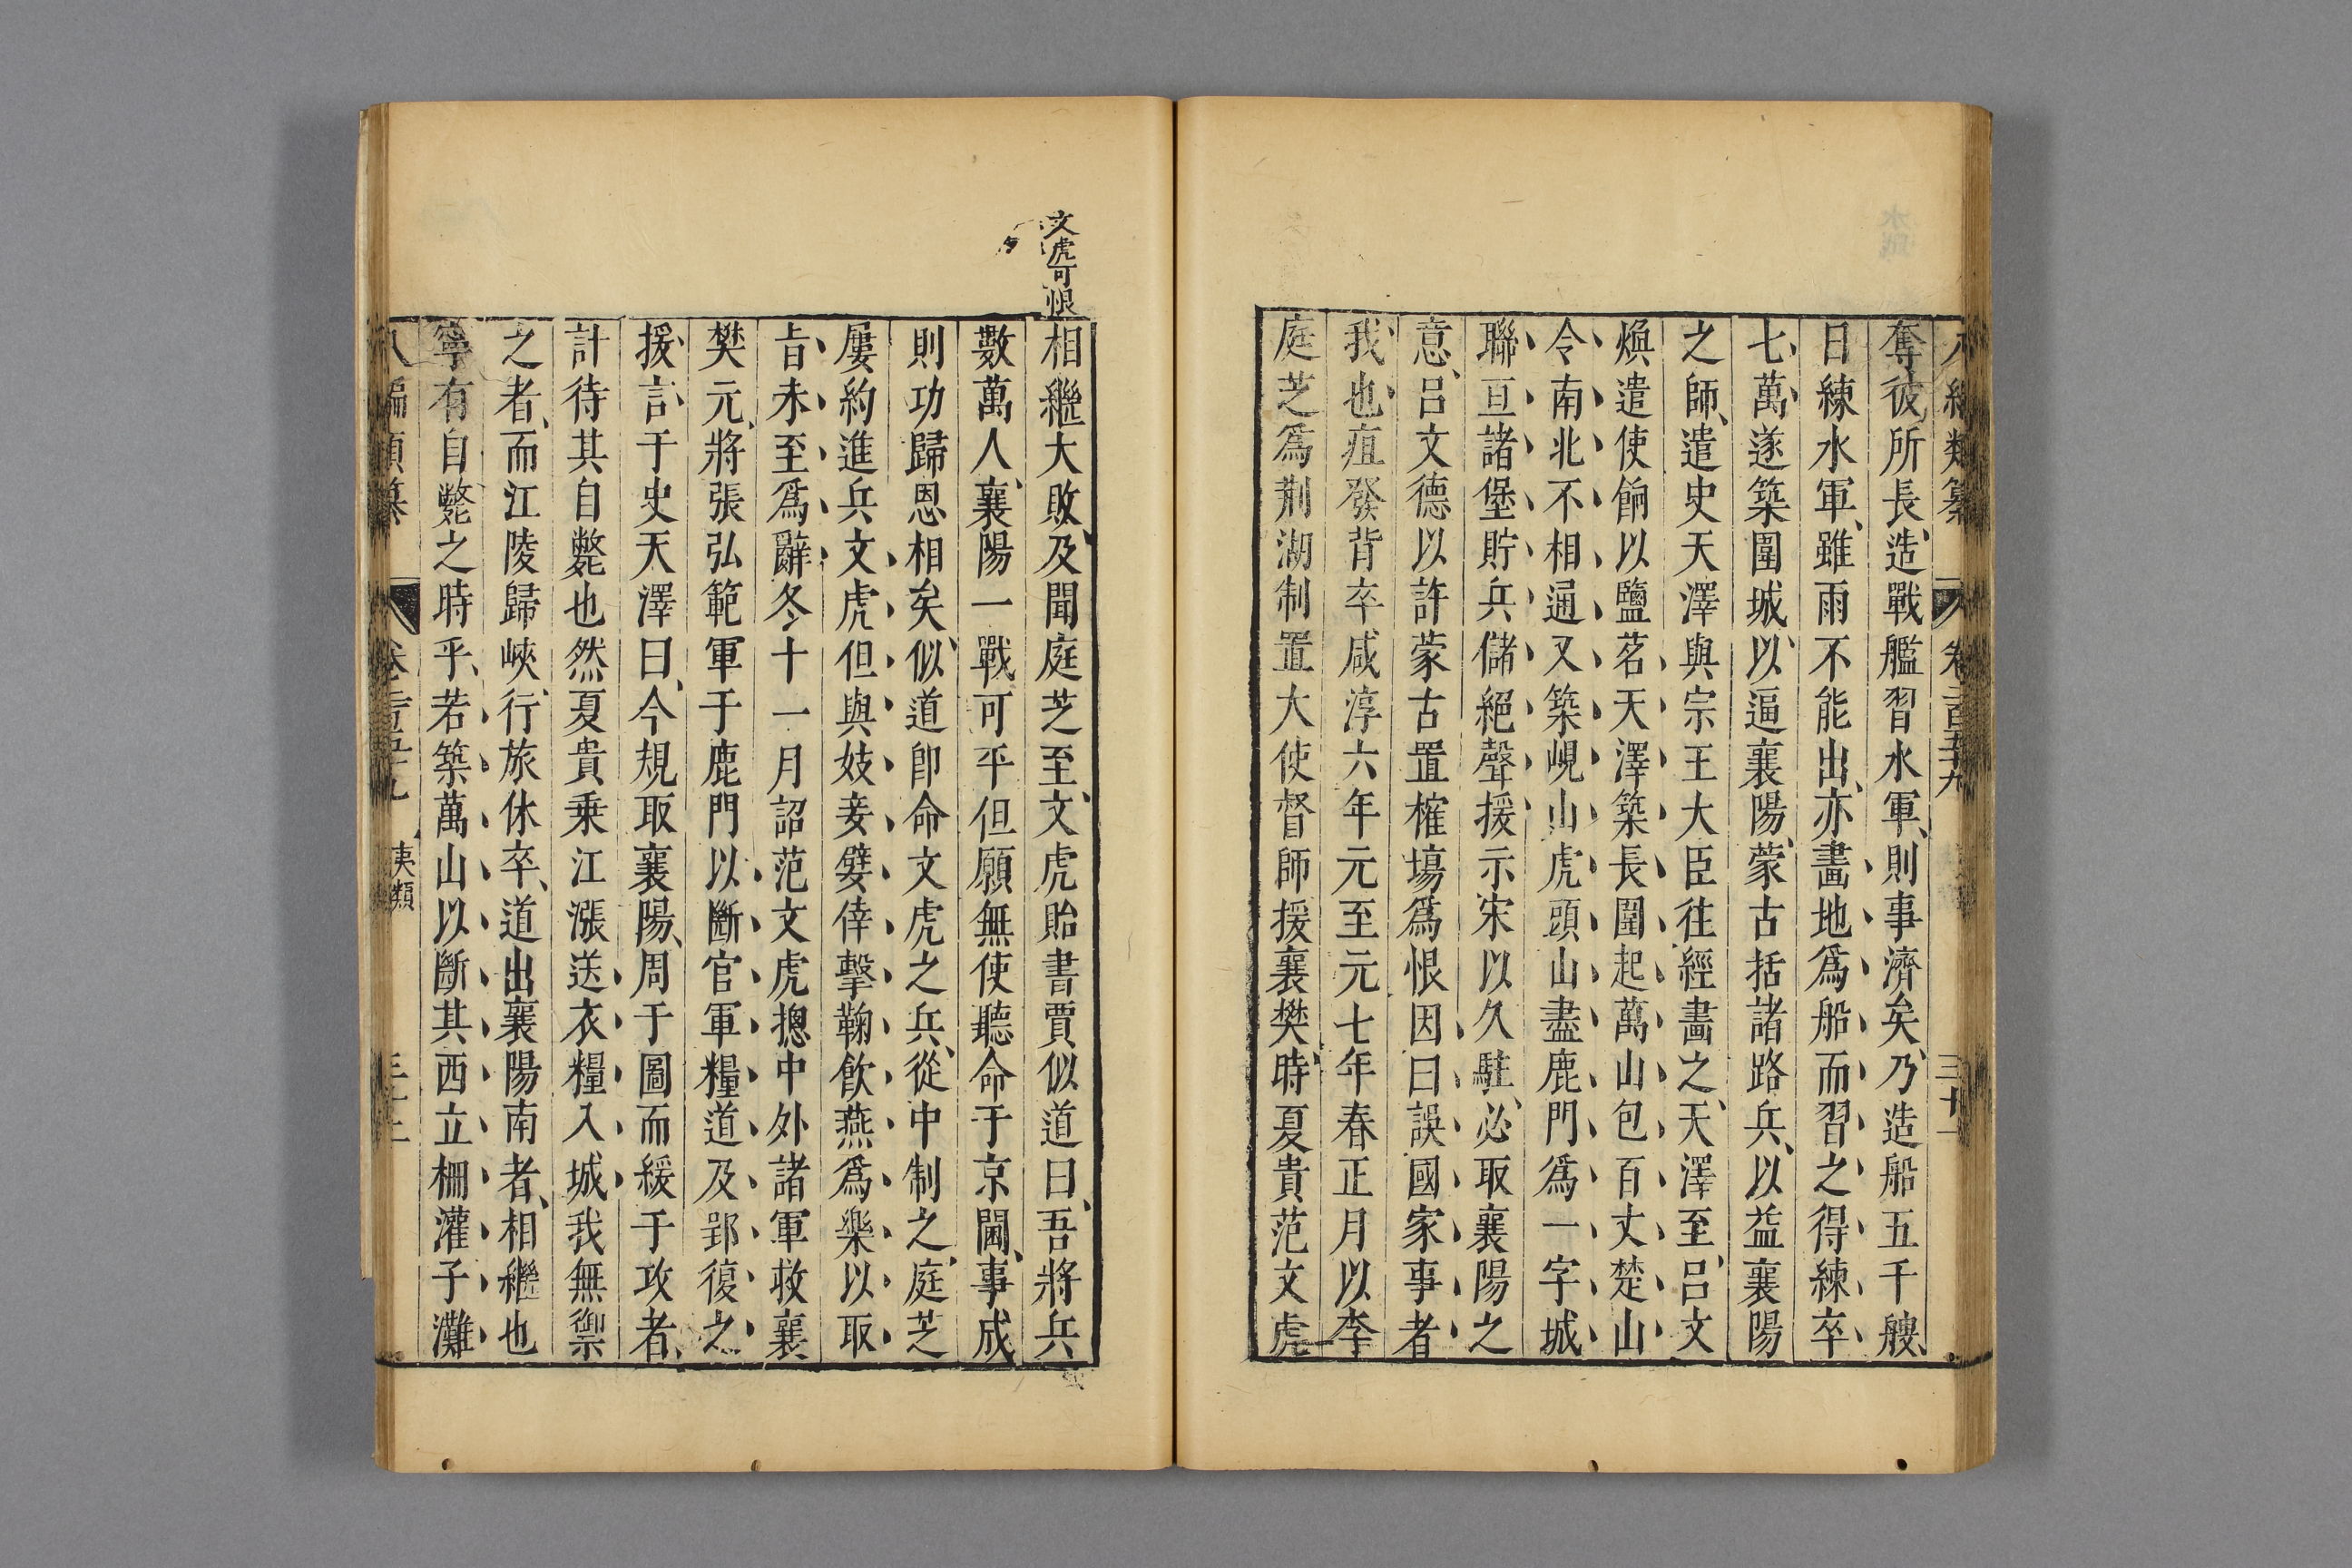 奪彼所長造戰艦習水軍則事濟矣乃造船五千艘
日練水軍雖雨不能出亦畫地爲船而習之得練卒
七萬遂築圍城以逼襄陽蒙古括諸路兵以益襄陽
之師遣史天澤與宗王大臣往經畫之天澤至呂文
煥遣使餉以鹽茗天澤築長圍起萬山包百丈楚山
令南北不相通又築峴山虎頭山盡鹿門爲一字城
聯亘諸堡貯兵儲絕聲援示宋以久駐必取襄陽之
意呂文德以許蒙古置榷塲爲恨因曰誤國家事者
我也疽發背卒咸淳六年元至元七年春正月以李
庭芝爲荆湖制置大使督師援襄樊時夏貴范文虎
文虎可恨
相繼大敗及聞庭芝至文虎貽書賈似道曰吾將兵
數萬人襄陽一戰可平但願無使聽命于京閫事成
則功歸恩相矣似道卽命文虎之兵從中制之庭芝
屢約進兵文虎但與妓妾嬖倖擊鞠飲燕爲樂以取
旨未至爲辭冬十一月詔范文虎摠中外諸軍救襄
樊元將張弘範軍于鹿門以斷官軍糧道及郢復之
援言于史天澤曰今規取襄陽周于圖而緩于攻者
計待其自斃也然夏貴乗江漲送衣糧入城我無禦
之者而江陵歸峽行旅休卒道出襄陽南者相繼也
寧有自斃之時乎若築萬山以斷其西立柵灌子灘